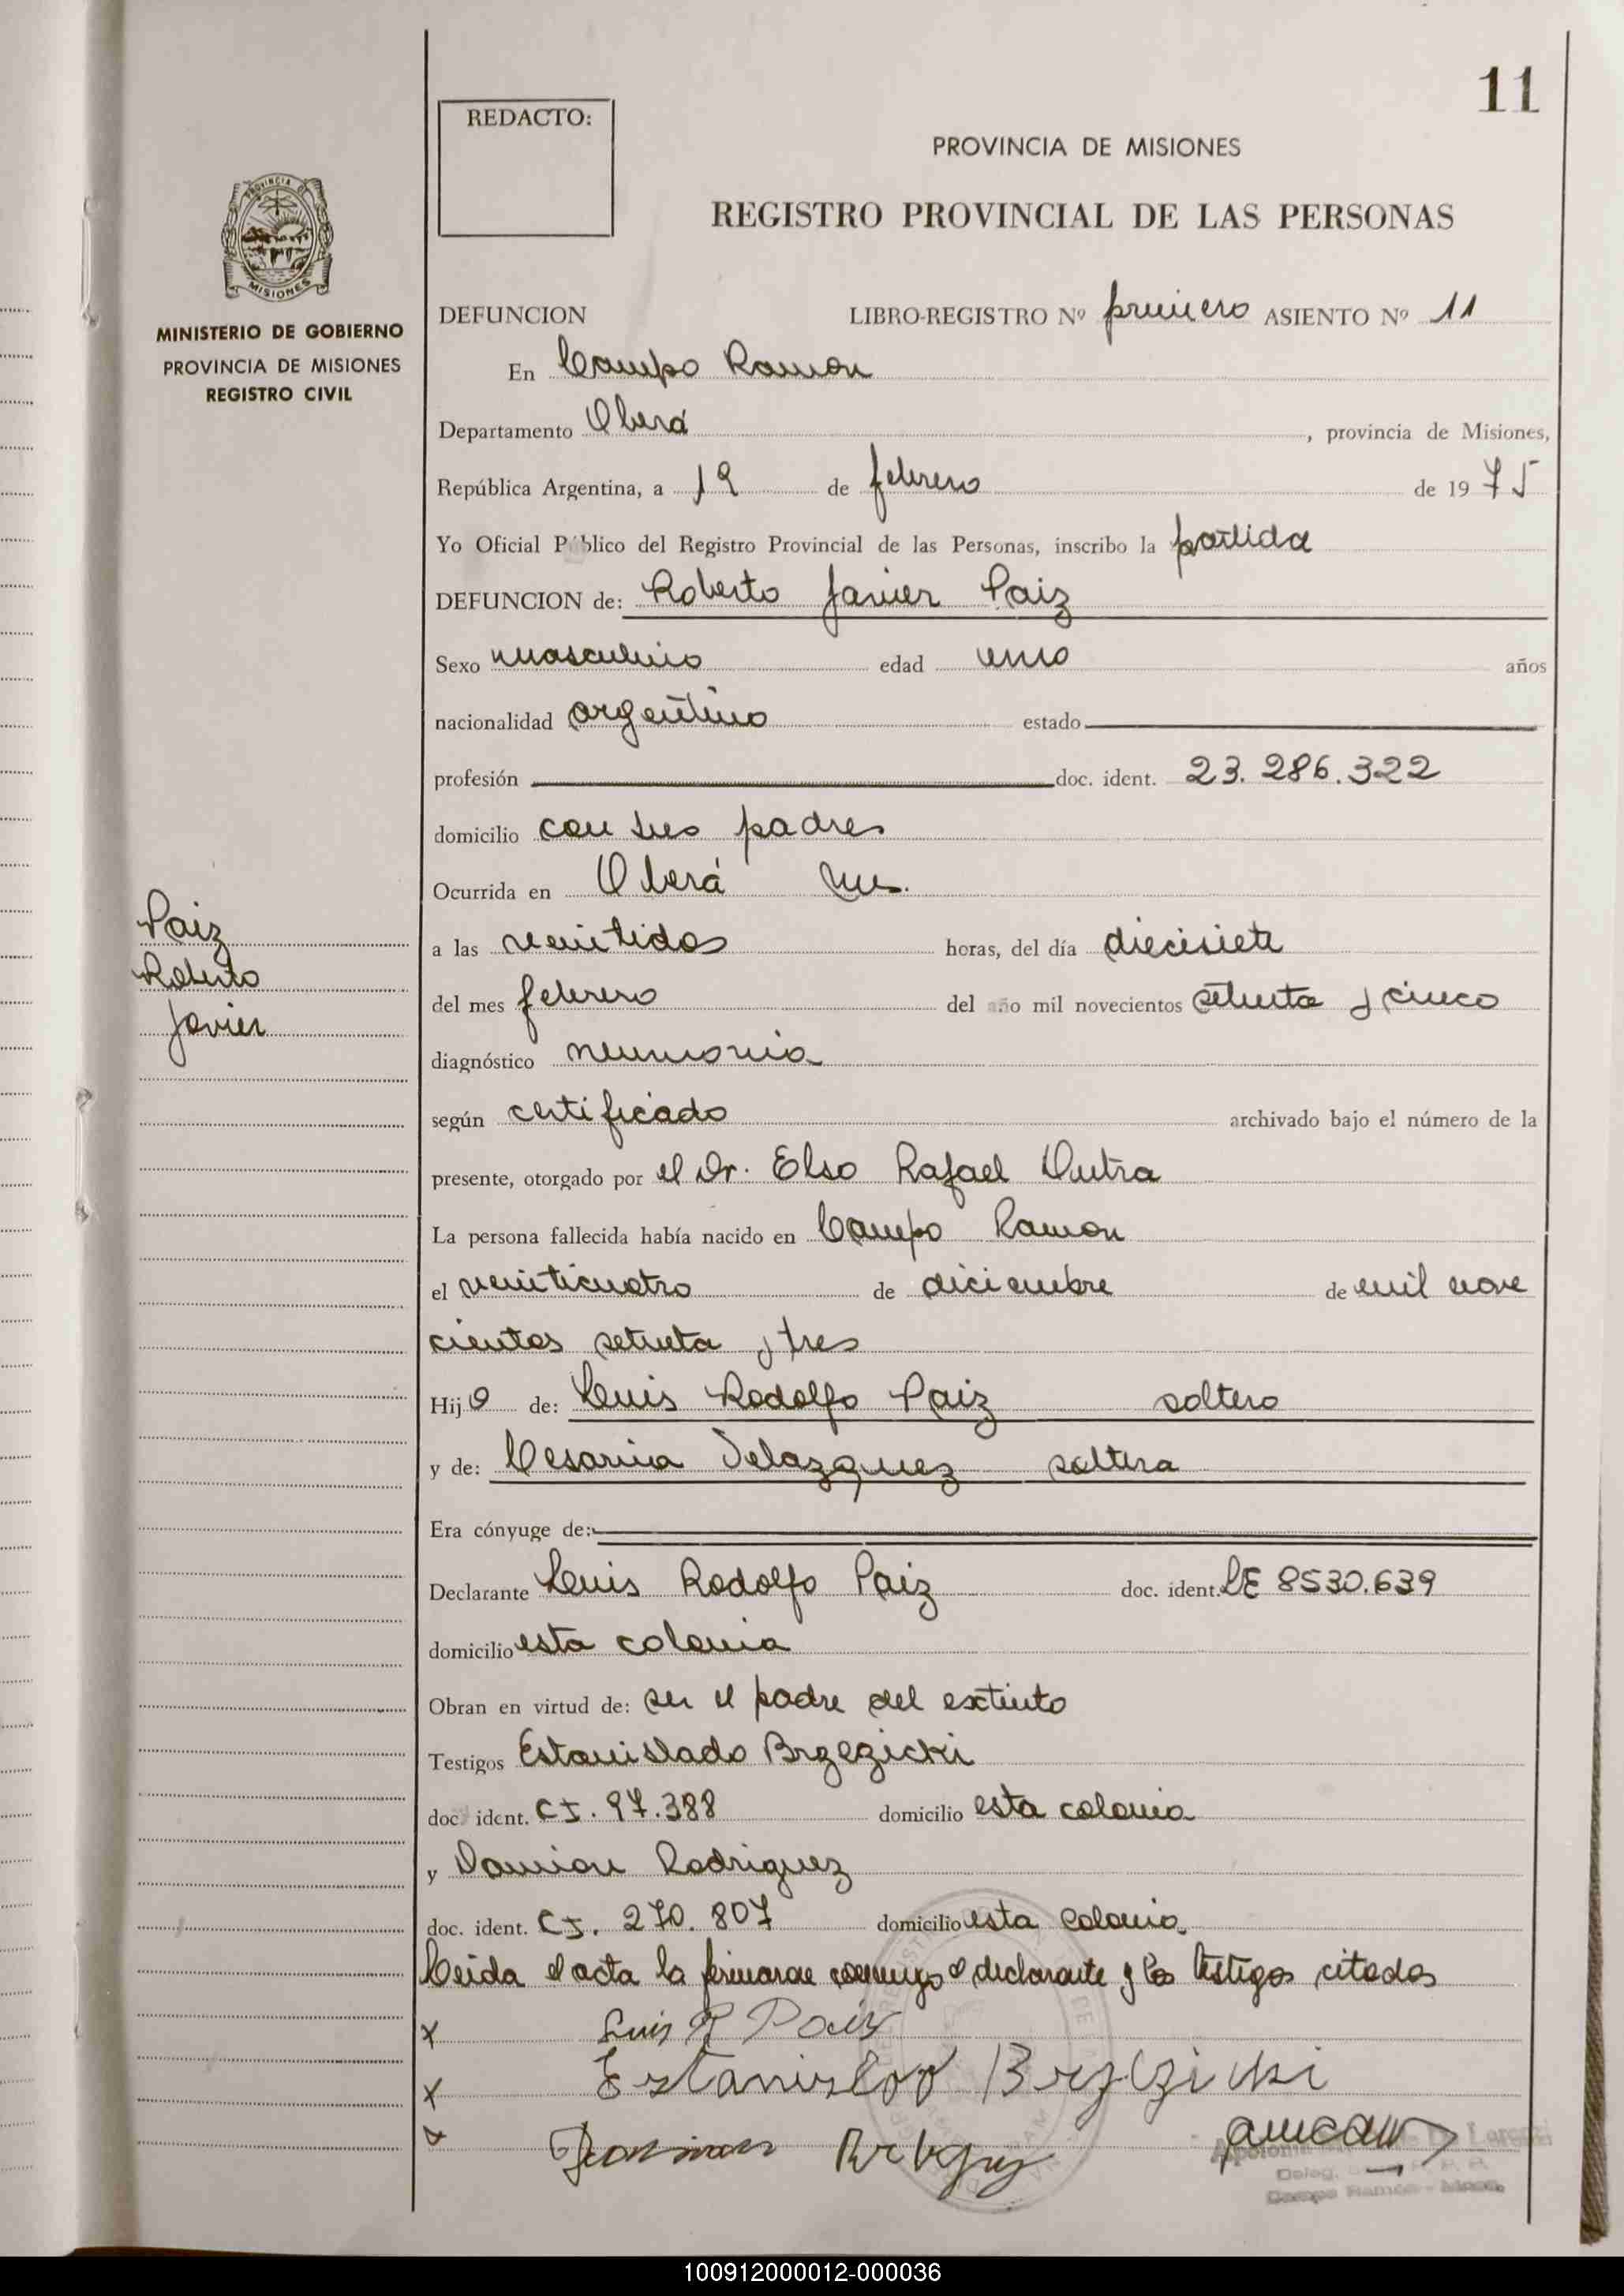 11
REDACTO:
PROVINCIA DE MISIONES
REGISTRO PROVINCIAL DE LAS PERSONAS
PROVINCIA DE
MISIONES
MINISTERIO DE GOBIERNO
PROVINCIA DE MISIONES
REGISTRO CIVIL
DEFUNCION LIBRO-REGISTRO Nº primero ASIENTO Nº 11
En Campo Ramon
Departamento Oberá, provincia de Misiones,
República Argentina, a 19 de febrero de 1975
Yo Oficial Público del Registro Provincial de las Personas, inscribo la partida
DEFUNCION de: Roberto Javier Paiz
Sexo masculino edad uno años
nacionalidad argentino estado
profesión doc. ident. 23.286.322
domicilio con sus padres
Ocurrida en Oberá Mns.
Paiz
Roberto
Javier
a las veintidos horas, del día diecisiete
del mes febrero del año mil novecientos setenta y cinco
diagnóstico neumonia
según certificado archivado bajo el número de la
presente, otorgado por el Dr. Elso Rafael Dutra
La persona fallecida había nacido en Campo Ramon
el veinticuatro de diciembre de mil nove
cientos setenta y tres
Hijo de: Luis Rodolfo Paiz soltero
y de: Cesarina Velazquez soltera
Era cónyuge de:
Declarante Luis Rodolfo Paiz doc. ident. LE 8530.639
domicilio esta colonia
Obran en virtud de: ser el padre del extinto
Testigos Estanislado Brzezicki
doc. ident. CI. 97.388 domicilio esta colonia
y Damian Rodriguez
doc. ident. CI. 270.807 domicilio esta colonia
Leida el acta la firmaron conmigo el declarante y los testigos citados
x Luis R Paiz
x Estanislao Brzezicki
x
Campo Ramón - Mnes.
100912000012-000036